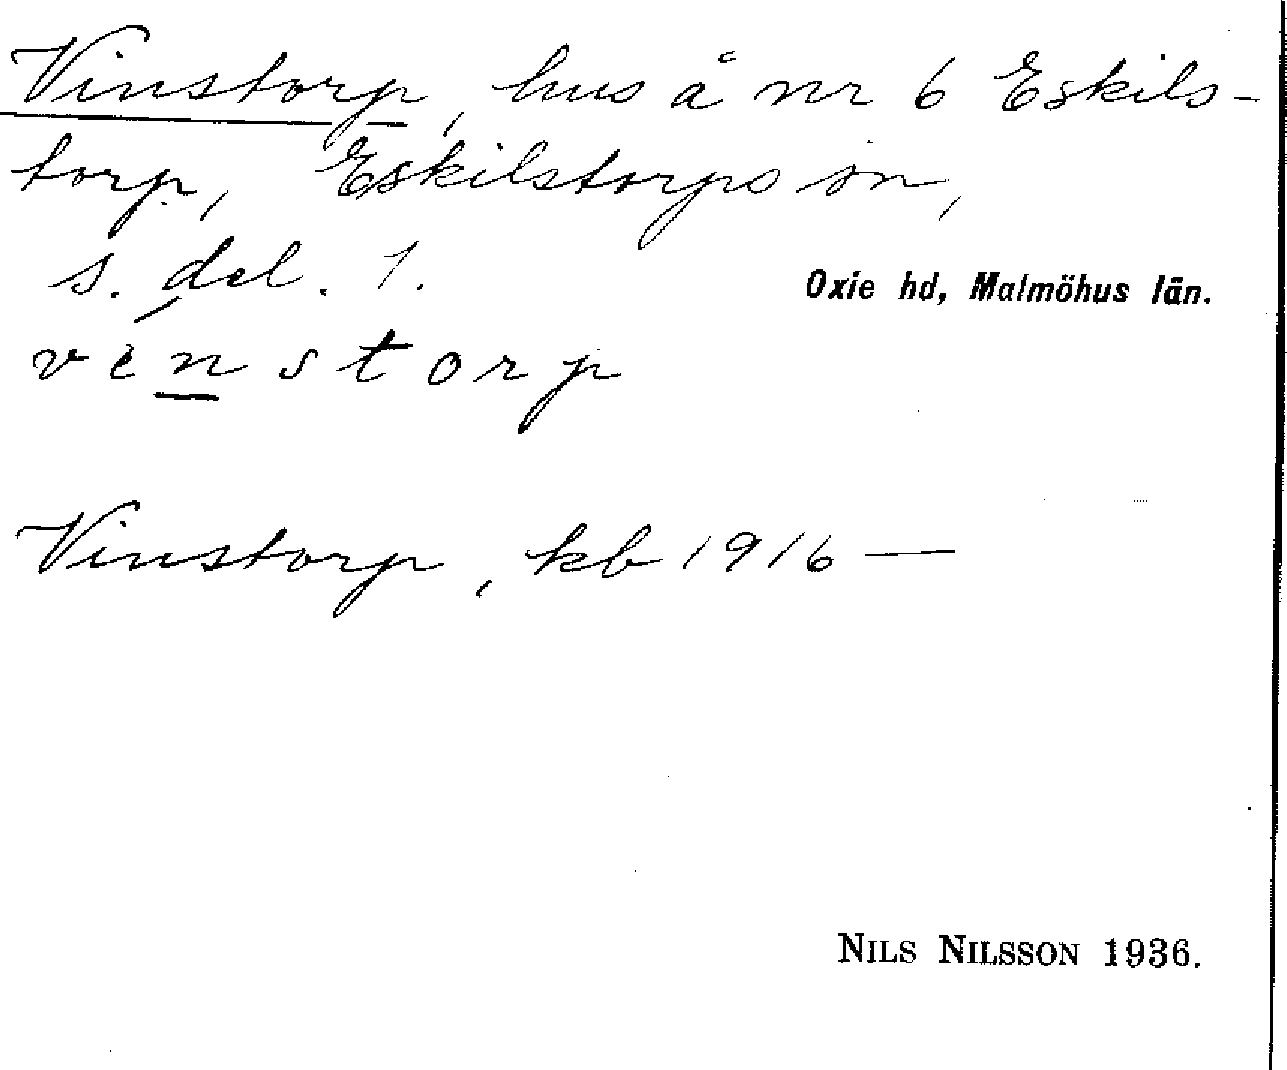 Vinstorp, hus å nr 6 Eskils-
torp, Eskilstorps sn,
s. del. 1.
Oxie hd, Malmöhus län.
vènstorp
Vinstorp, kb 1916—
NILS NILSSON 1936.